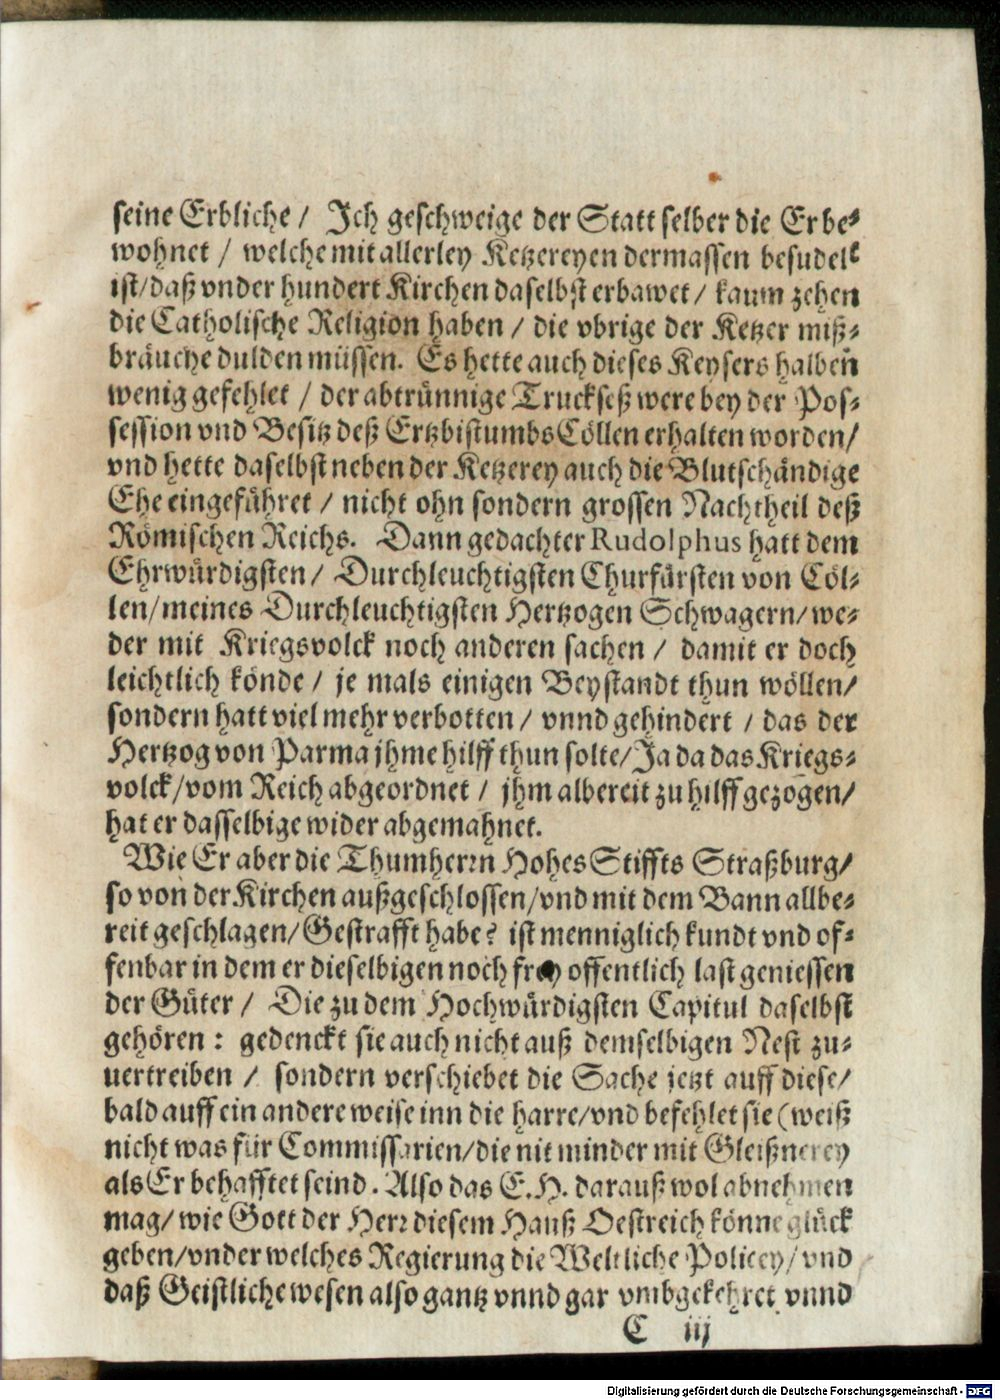 seine Erbliche / Ich geschweige der Statt selber die Er be-
wohnet / welche mit allerley Ketzereyen dermassen besudelt
ist/daß vnder hundert Kirchen daselbst erbawet / kaum zehen
die Catholische Religion haben / die vbrige der Ketzer miß-
bräuche dulden müssen. Es hette auch dieses Keysers halben
wenig gefehlet / der abtrünnige Truckseß were bey der Pos-
session vnd Besitz deß Ertzbistumbs Cöllen erhalten worden/
vnd hette daselbst neben der Ketzerey auch die Blutschändige
Ehe eingeführet / nicht ohn sondern grossen Nachtheil deß
Römischen Reichs. Dann gedachter Rudolphus hatt dem
Ehrwürdigsten / Durchleuchtigsten Churfürsten von Cöl-
len/meines Durchleuchtigsten Hertzogen Schwagern/we-
der mit Kriegsvolck noch anderen sachen / damit er doch
leichtlich könde / je mals einigen Beystandt thun wöllen/
sondern hatt viel mehr verbotten / vnnd gehindert / das der
Hertzog von Parma jhme hilff thun solte/Ja da das Kriegs-
volck/vom Reich abgeordnet / jhm albereit zu hilff gezogen/
hat er dasselbige wider abgemahnet.
Wie Er aber die Thumherrn Hohes Stiffts Straßburg/
so von der Kirchen außgeschlossen/vnd mit dem Bann allbe-
reit geschlagen/Gestrafft habe? ist menniglich kundt vnd of-
fenbar in dem er dieselbigen noch frey offentlich last geniessen
der Güter / Die zu dem Hochwürdigsten Capitul daselbst
gehören : gedenckt sie auch nicht auß demselbigen Nest zu-
uertreiben / sondern verschiebet die Sache jetzt auff diese/
bald auff ein andere weise inn die harre/vnd befehlet sie (weiß
nicht was für Commissarien/die nit minder mit Gleißnerey
als Er behafftet seind. Also das E.H. darauß wol abnehmen
mag/wie Gott der Herr diesem Hauß Oestreich könne glück
geben/vnder welches Regierung die Weltliche Policey/vnd
daß Geistliche wesen also gantz vnnd gar vmbgekehret vnnd
C iij
Digitalisierung gefördert durch die Deutsche Forschungsgemeinschaft - DFG